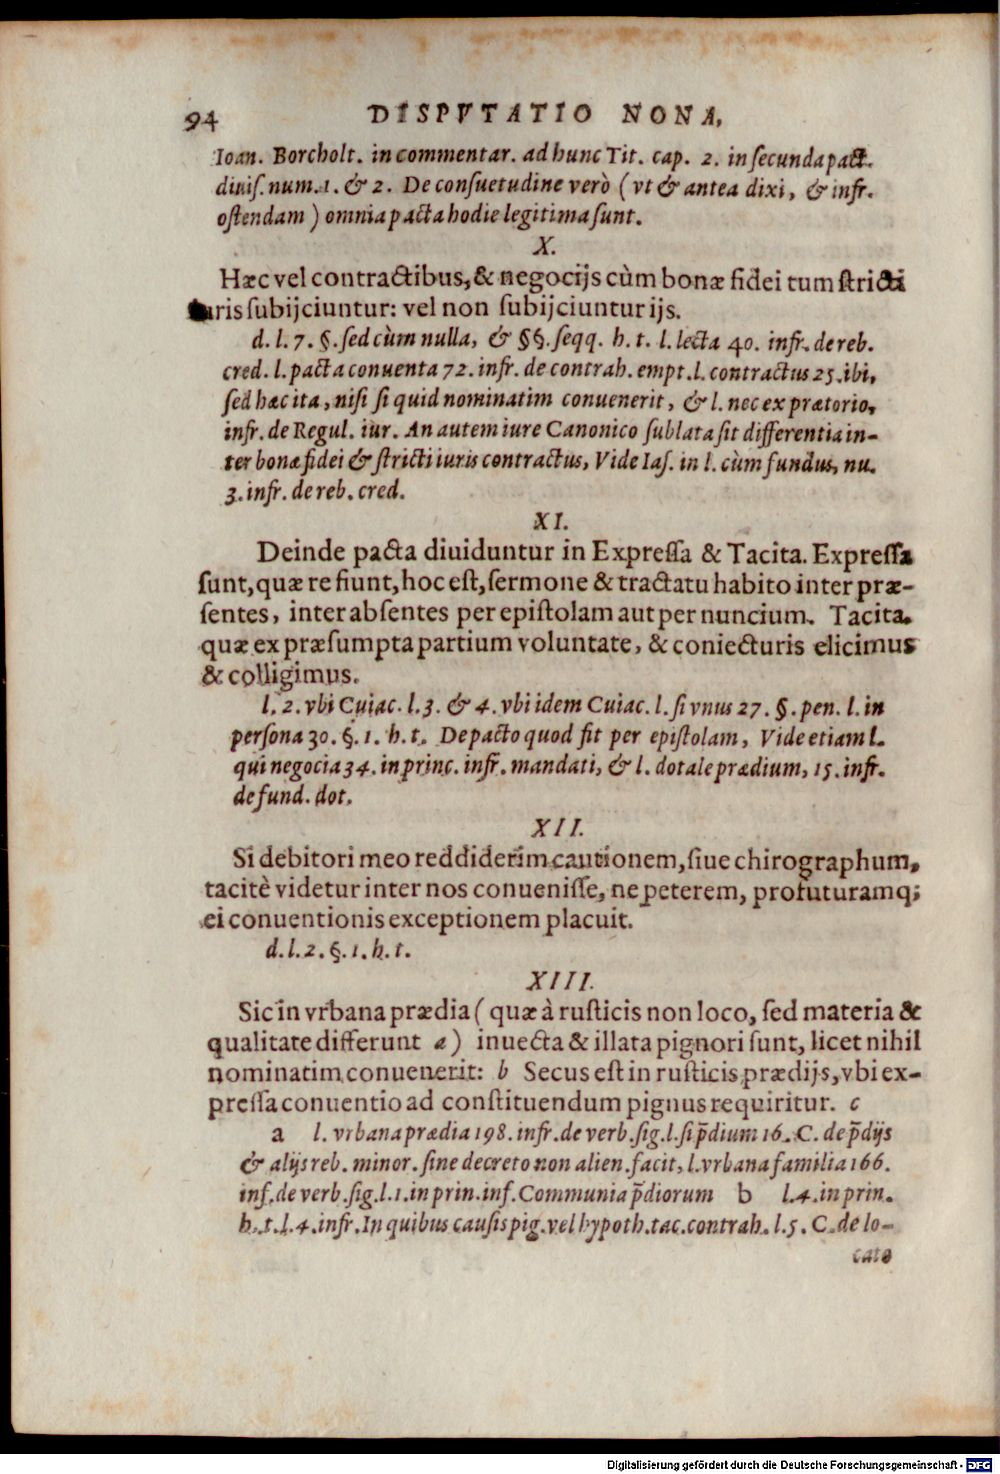 94 DISPVTATIO NONA,
Ioan. Borcholt. in commentar. ad hunc Tit. cap. 2. in ſecunda pact.
diuiſ. num. 1. & 2. De conſuetudine verò (vt & antea dixi, & infr.
oſtendam) omnia pacta hodie legitima ſunt.
X.
Hæc vel contractibus, & negocijs cùm bonæ fidei tum ſtricti
iuris ſubijciuntur: vel non ſubijciuntur ijs.
d. l. 7. §. ſed cùm nulla, & §§. ſeqq. h. t. l. lecta 40. infr. de reb.
cred. l. pacta conuenta 72. infr. de contrah. empt. l. contractus 25. ibi,
ſed hæc ita, niſi ſi quid nominatim conuenerit, & l. nec ex prætorio,
infr. de Regul. iur. An autem iure Canonico ſublata ſit differentia in-
ter bonæ fidei & ſtricti iuris contractus, Vide Iaſ. in l. cùm fundus, nu.
3. infr. de reb. cred.
XI.
Deinde pacta diuiduntur in Expreſſa & Tacita. Expreſſa
ſunt, quæ re fiunt, hoc eſt, ſermone & tractatu habito inter præ-
ſentes, inter abſentes per epiſtolam aut per nuncium. Tacita.
quæ ex præſumpta partium voluntate, & coniecturis elicimus
& colligimus.
l. 2. vbi Cuiac. l. 3. & 4. vbi idem Cuiac. l. ſi vnus 27. §. pen. l. in
perſona 30. §. 1. h. t. De pacto quod fit per epiſtolam, Vide etiam l.
qui negocia 34. in princ. infr. mandati, & l. dotale prædium, 15. infr.
de fund. dot.
XII.
Si debitori meo reddiderim cautionem, ſiue chirographum,
tacitè videtur inter nos conueniſſe, ne peterem, profuturamq;
ei conuentionis exceptionem placuit.
d. l. 2. §. 1. h. t.
XIII.
Sic in vrbana prædia (quæ à ruſticis non loco, ſed materia &
qualitate differunt a) inuecta & illata pignori ſunt, licet nihil
nominatim conuenerit: b Secus eſt in ruſticis prædijs, vbi ex-
preſſa conuentio ad conſtituendum pignus requiritur. c
a l. vrbana prædia 198. infr. de verb. ſig. l. ſi p̄dium 16. C. de p̄dijs
& alijs reb. minor. ſine decreto non alien. facit, l. vrbana familia 166.
inf. de verb. ſig. l. 1. in prin. inf. Communia p̄diorum b l. 4. in prin.
h. t. l. 4. infr. In quibus cauſis pig. vel hypoth. tac. contrah. l. 5. C. de lo-
cato
Digitalisierung gefördert durch die Deutsche Forschungsgemeinschaft - DFG